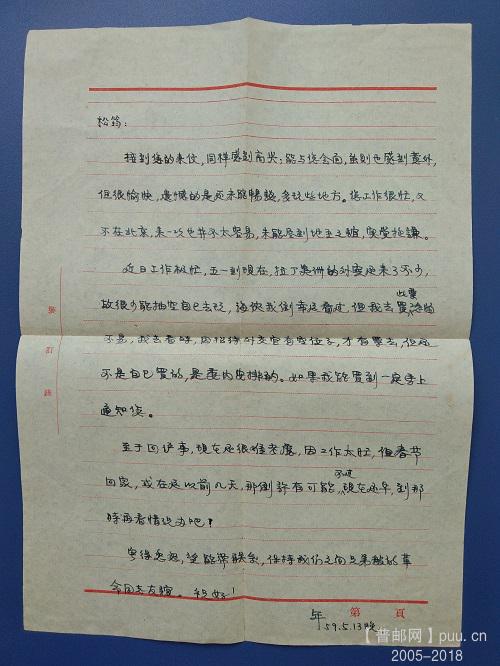 松筠：
接到您的来信，同样感到高兴；能与您会面，虽则也感到意外，
但很愉快，遗憾的是还未能畅谈，多玩些地方。您工作很忙，又
不在北京，来一次也并不太容易，未能尽到地主之谊，实觉抱谦。
近日工作极忙，五一到现在，拉丁美洲的外宾还来了不少，
故很少能抽空自己去玩，海侠我倒幸运看过，但我去买此票
不易，我去看时，因招待外宾有空位子，才有票去，但还
不是自己买的，是室内安排的。如果我能买到一定马上
通知您。
至于回沪事，现在还很难考虑，因工作太忙，但春节
回家，或在这以前几天，那倒许有可能，不过现在还早，到那
时再看情况办吧！
字很忽忽，望能常联系，保持我们之间
命同志友谊。祝好！
年
59.5.13晚
第 頁
装订线
【普邮网】puu.cn
2005-2018